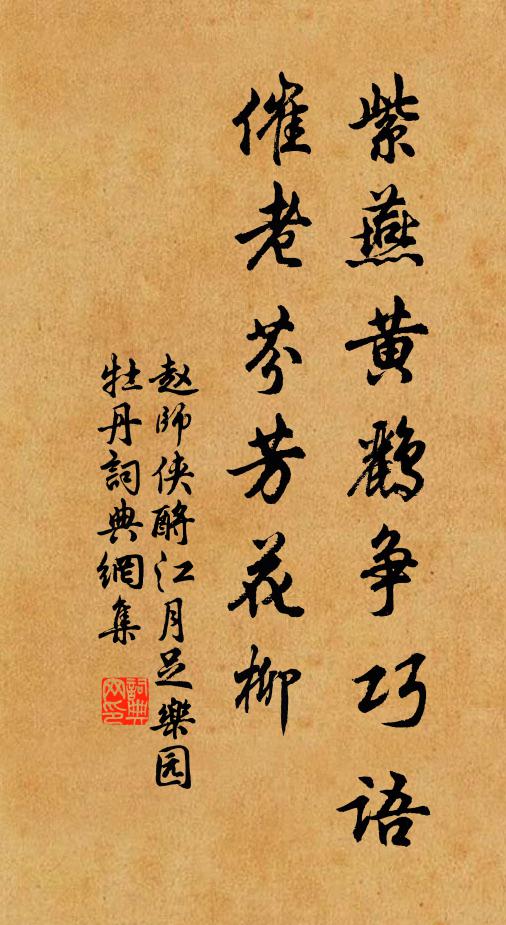 紫燕黄鸝争巧语
催老芬芳花柳
赵師侠酹江月足樂园
牡丹詞典網集
詞典
网印